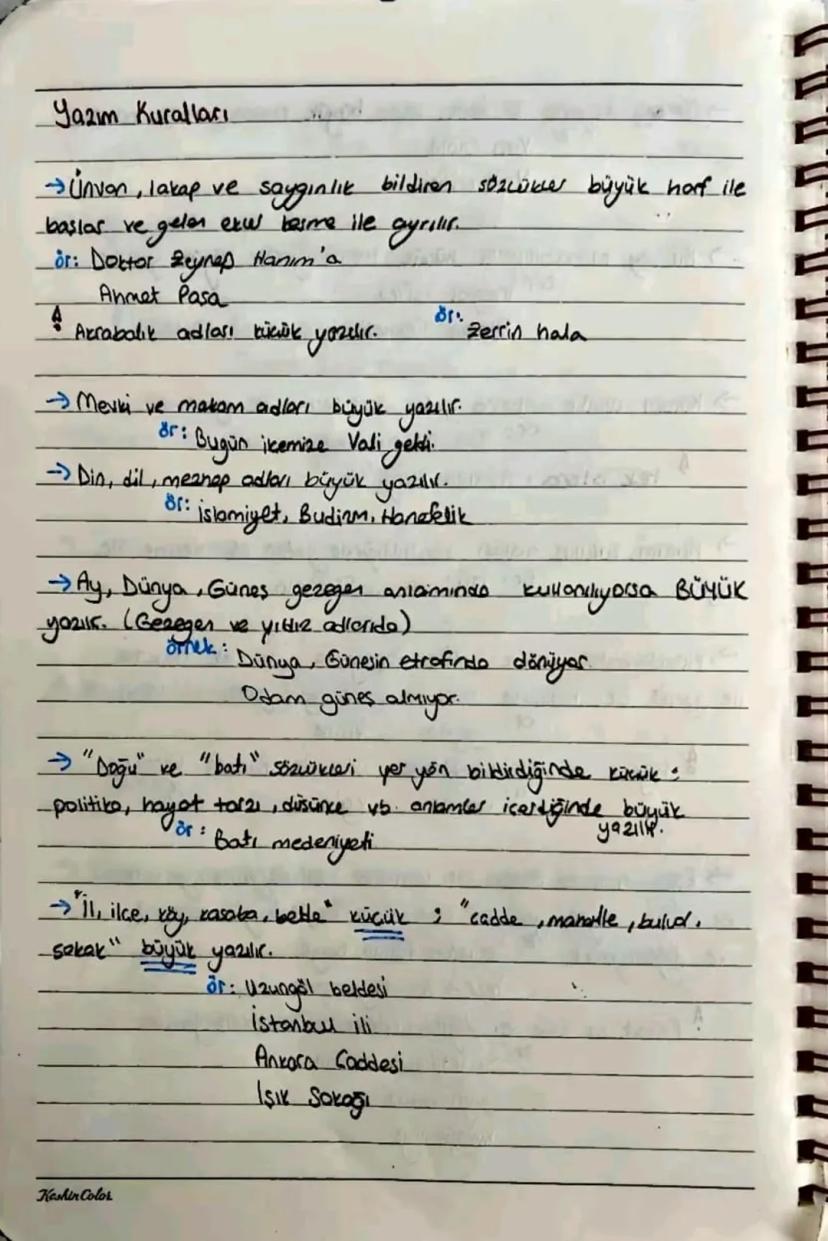 Yazım Kuralları
→ Ünvan, lakap ve saygınlık bildiren sözcükler büyük harf ile
başlar ve gelen ekler kesme ile ayrılır.
ör: Doktor Zeynep Hanım'a
Ahmet Paşa
! Akrabalık adları küçük yazılır. ör: Zerrin hala
→ Mevki ve makam adları büyük yazılır.
ör: Bugün ilçemize Vali geldi.
→ Din, dil, mezhep adları büyük yazılır.
ör: İslamiyet, Budizm, Hanefilik
→ Ay, Dünya, Güneş gezegen anlamında kullanılıyorsa BÜYÜK
yazılır. (Gezegen ve yıldız adlarıda)
örnek: Dünya, Güneşin etrafında dönüyor.
Odam güneş almıyor.
→ "Doğu" ve "batı" sözcükleri yer yön bildirdiğinde küçük ;
politika, hayat tarzı, düşünce vb. anlamlar içerdiğinde büyük
yazılır.
ör: Batı medeniyeti
→ "İl, ilçe, köy, kasaba, belde" küçük ; "cadde, mahalle, bulvar,
sokak" büyük yazılır.
ör: Uzungöl beldesi
İstanbul ili
Ankara Caddesi
Işık Sokağı
KeskinColor